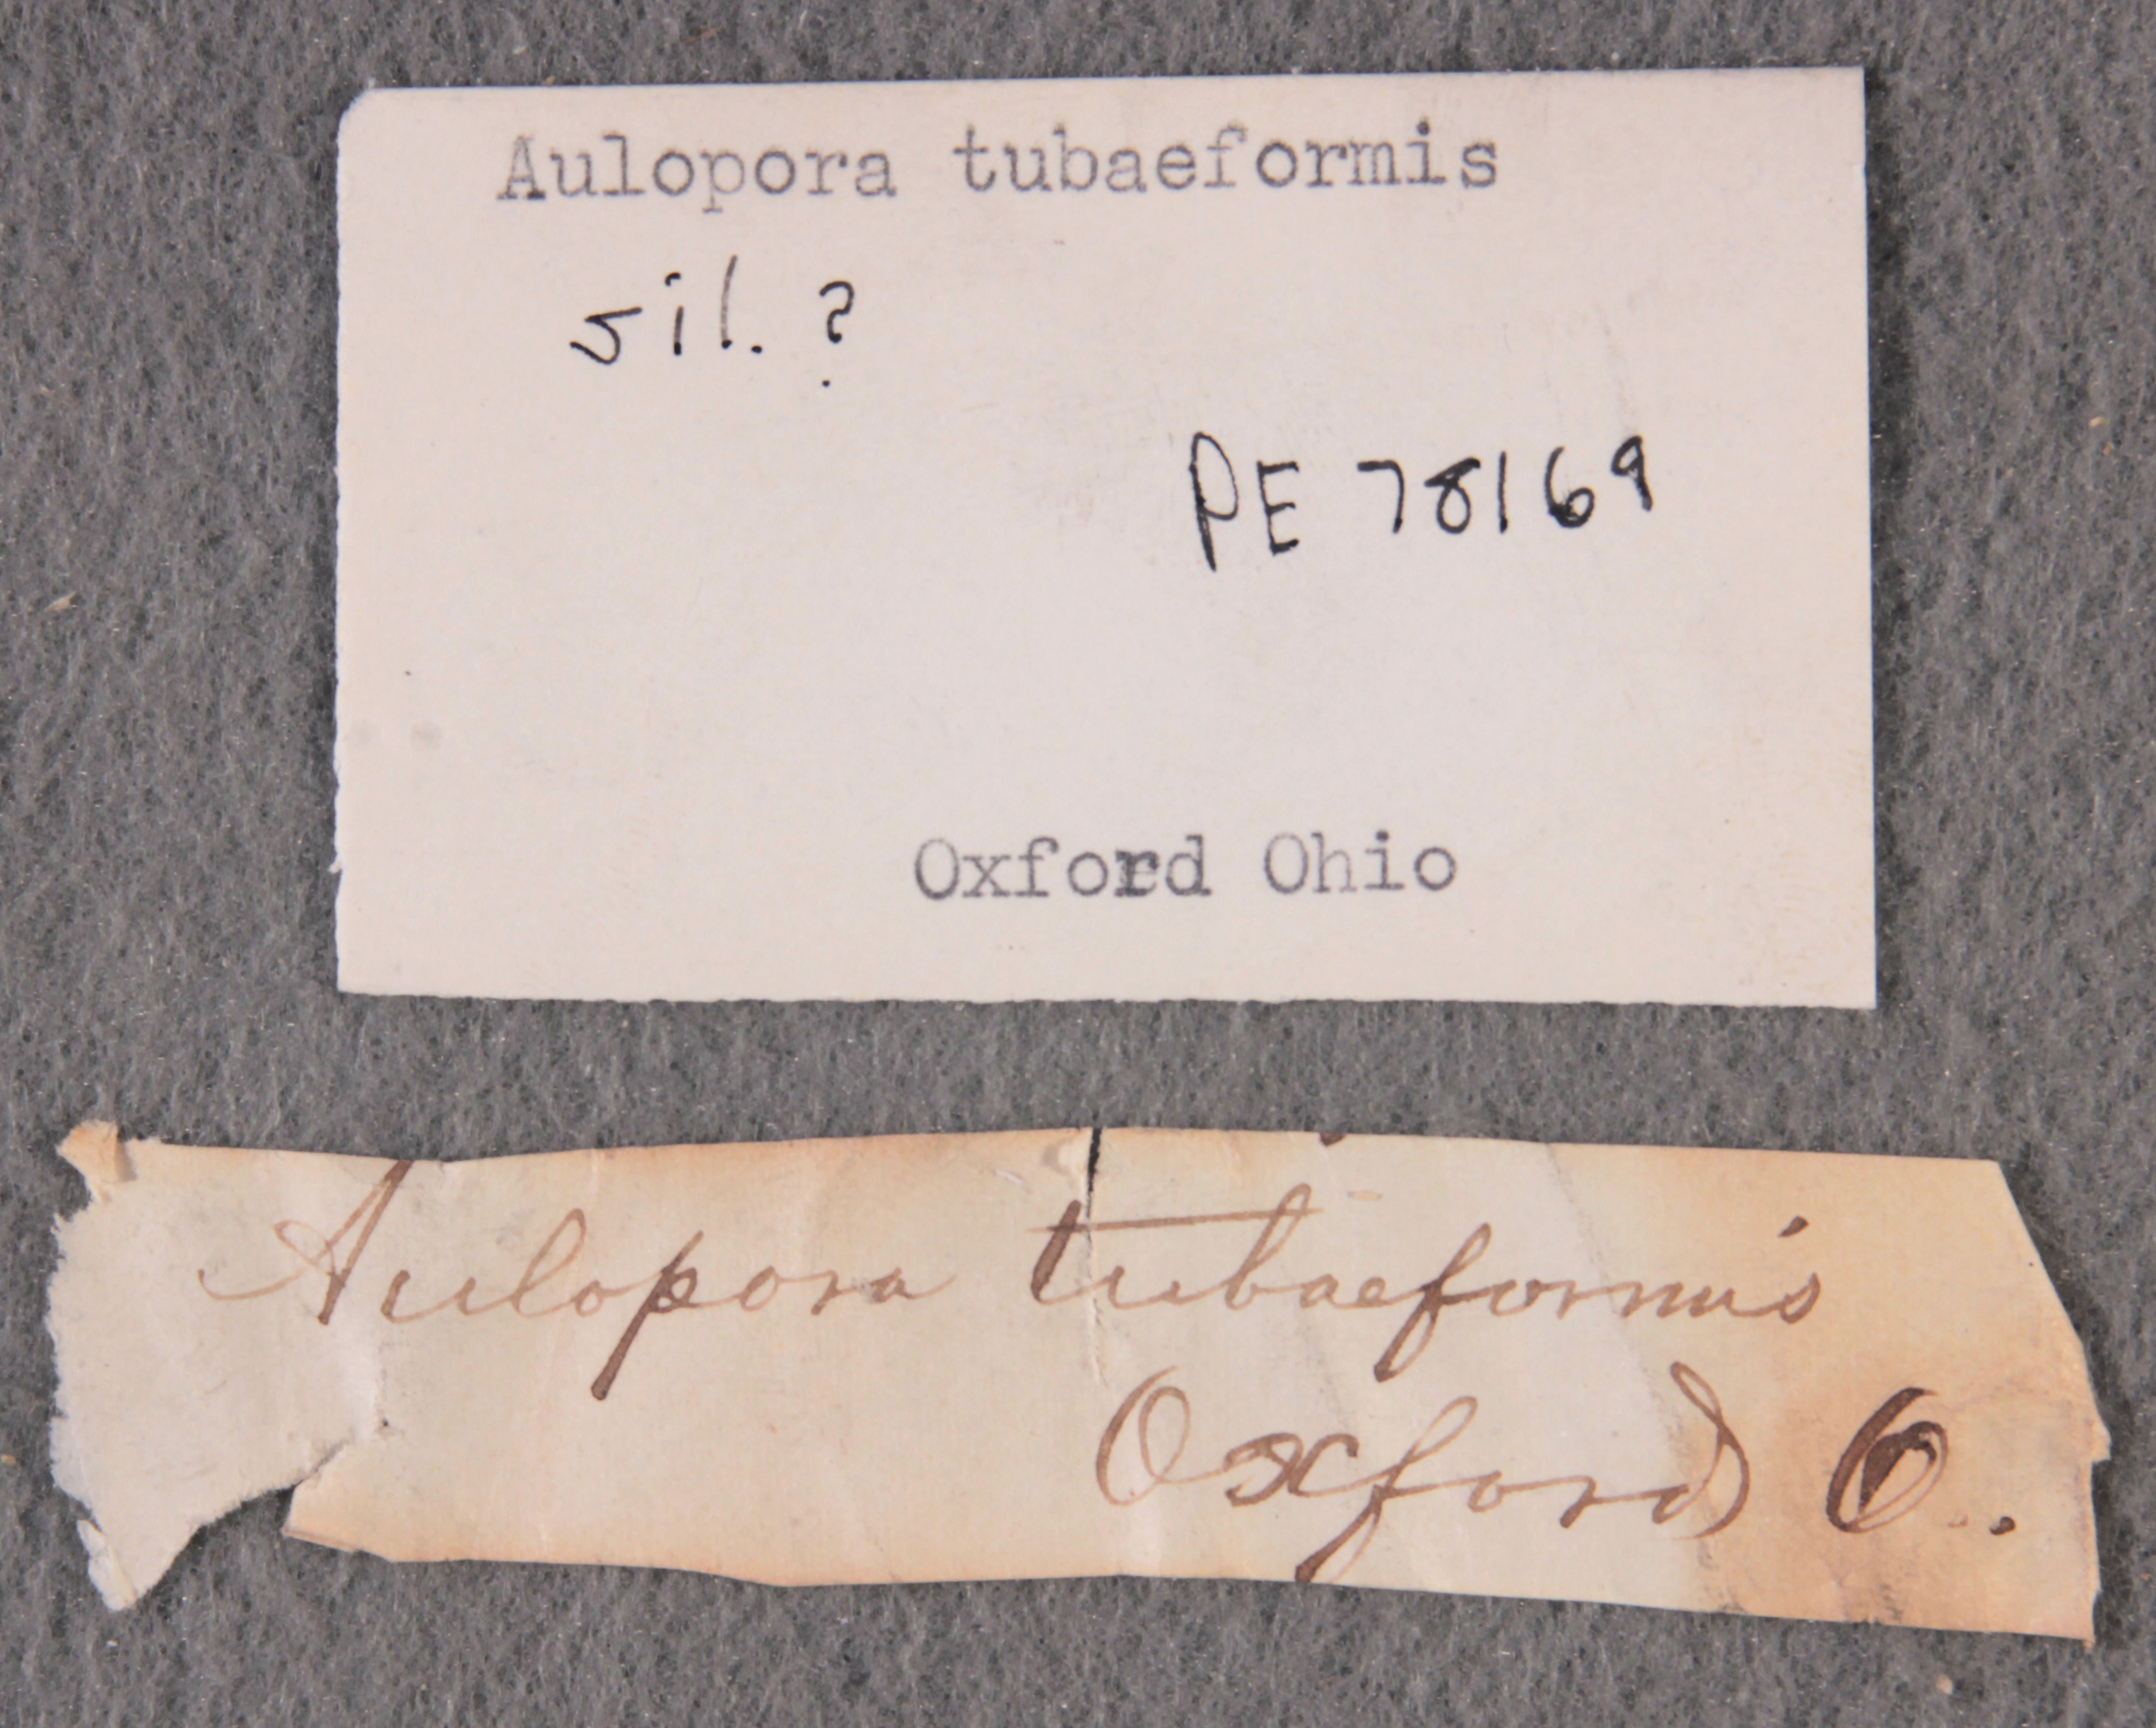 Aulopora tubaeformis
sil. ?
PE 78169
Oxford Ohio
Aulopora tubaeformis
Oxford O..